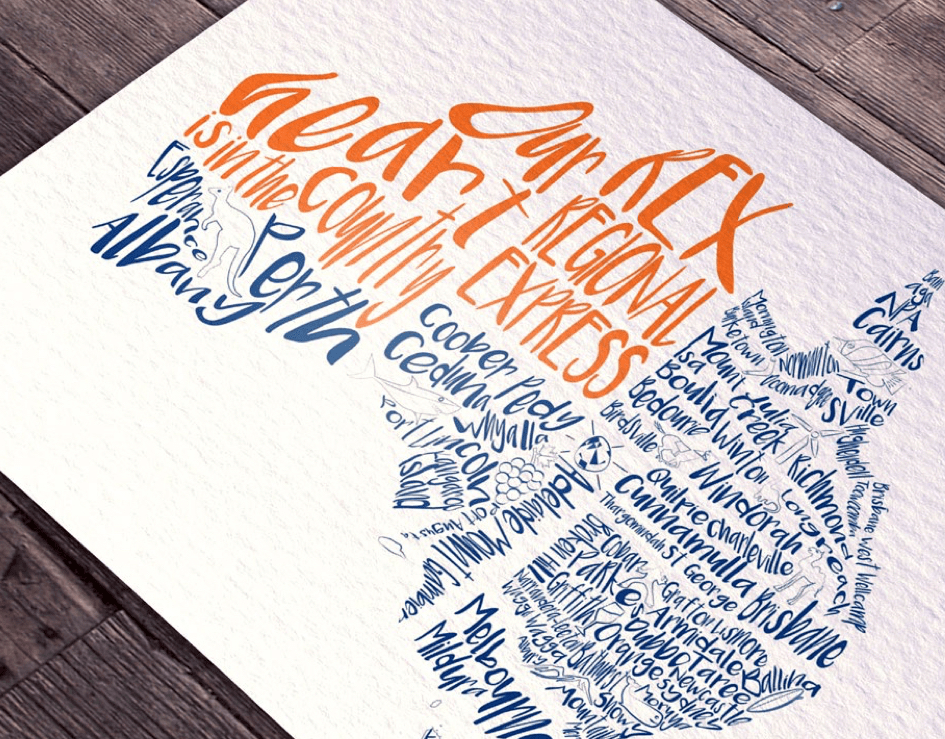 Our REX
REGIONAL
EXPRESS
heart
is in the country
Esperance
Albany
Perth
Coober Pedy
Ceduna
Whyalla
Port Lincoln
Kangaroo
Island
Port Augusta
Adelaide
Mount Gambier
Bamaga
Cairns
Mornington
Island
Burketown
Normanton
Doomadgee
Townsville
Mount
Isa
Julia
Creek
Hughenden
Richmond
Boulia
Winton
Bedourie
Birdsville
Windorah
Longreach
Quilpie
Charleville
Cunnamulla
Thargomindah
St George
Toowoomba
Brisbane West Wellcamp
Brisbane
Broken
Hill
Parkes
Grafton
Lismore
Griffith
Armidale
Dubbo
Taree
Ballina
Orange
Sydney
Newcastle
Wagga Wagga
Bathurst
Albury
Moruya
Snowy
Mountains
Melbourne
Mildura